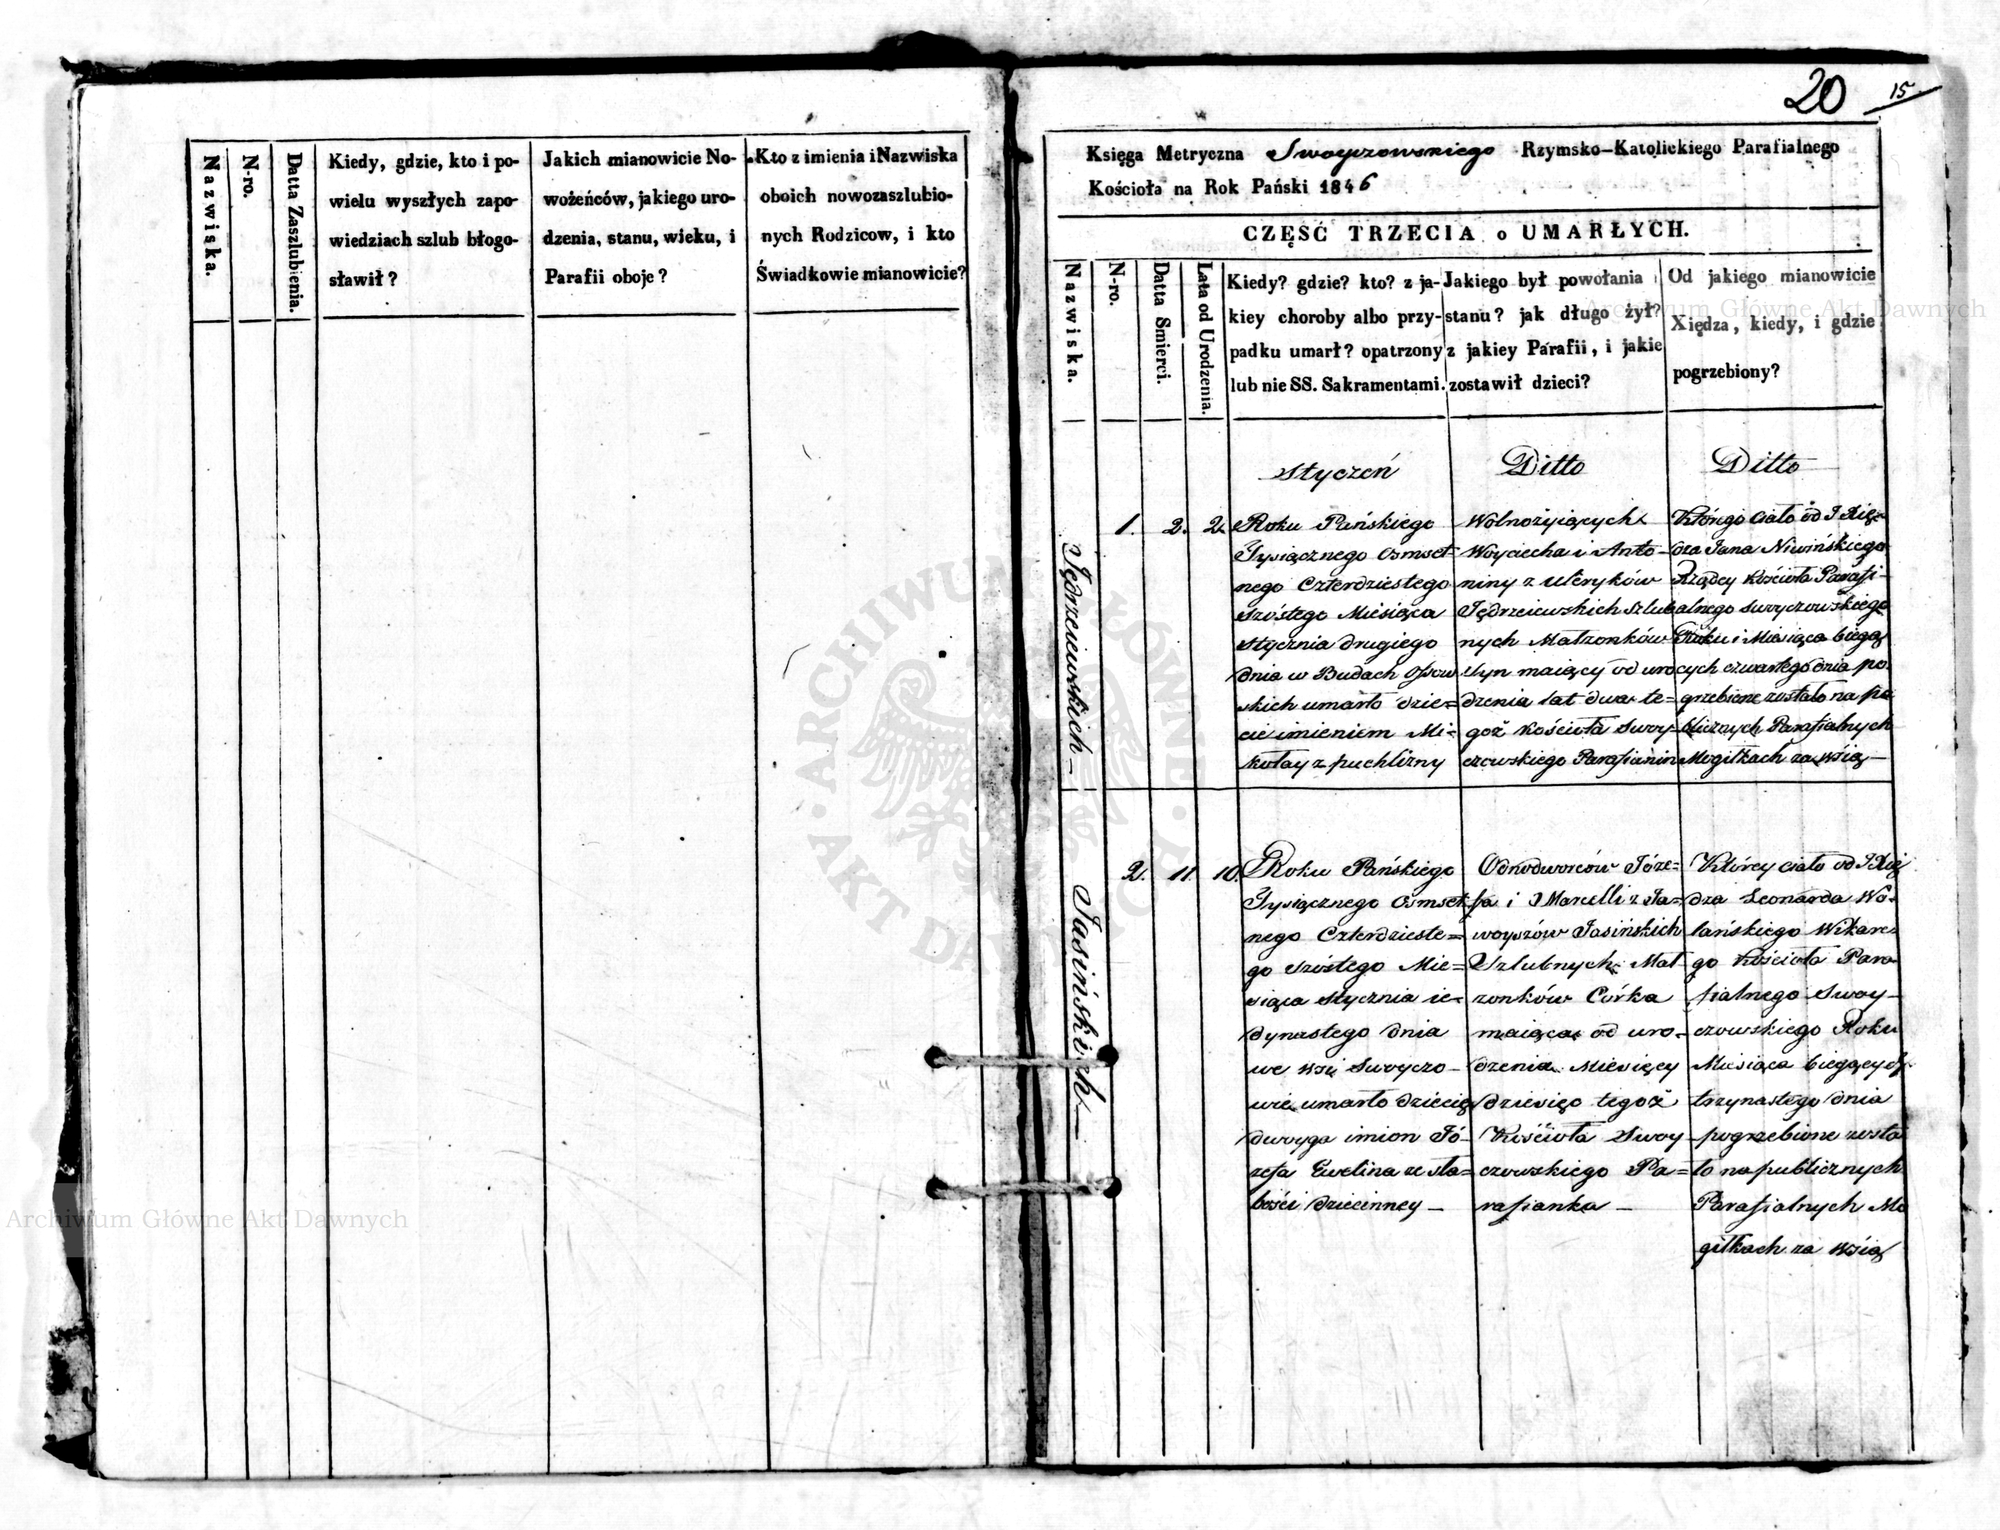 20 15
Nazwiska.
N-ro.
Datta Zaszlubienia.
Kiedy, gdzie, kto i po-
wielu wyszłych zapo-
wiedziach szlub błogo-
sławił?
Jakich mianowicie No-
wożeńców, jakiego uro-
dzenia, stanu, wieku, i
Parafii oboje?
Kto z imienia i Nazwiska
oboich nowozaszlubio-
nych Rodzicow, i kto
Świadkowie mianowicie?
Księga Metryczna Swoyczowskiego Rzymsko-Katolickiego Parafialnego
Kościoła na Rok Pański 1846
CZĘŚĆ TRZECIA o UMARŁYCH.
Nazwiska.
N-ro.
Datta Smierci.
Lata od Urodzenia.
Kiedy? gdzie? kto? z ja-
kiey choroby albo przy-
padku umarł? opatrzony
lub nie SS. Sakramentami.
Jakiego był powołania
stanu? jak długo żył?
z jakiey Parafii, i jakie
zostawił dzieci?
Od jakiego mianowicie
Xiędza, kiedy, i gdzie
pogrzebiony?
Styczeń
Ditto
Ditto
Jędrzeiewskich
1. 2. 2.
Roku Pańskiego
Tysiącznego Osmset-
nego Czterdziestego
Szóstego Miesiąca
Stycznia drugiego
dnia w Budach
skich umarło dzie=
cie imieniem Mi=
kołay z puchlizny
Wolnożyiących
Woyciecha i Anto-
niny z
Jędrzeiewskich Szlub
nych Małżonków
Syn maiący od uro
dzenia lat dwa te=
goż Kościoła Swoy-
czowskiego Parafianin
Którego ciało od J Xię-
dza Jana Niwińskiego
Rządcy Kościoła Parafi-
alnego Swoyczowskiego
Roku i Miesiąca biegą
cych czwartego dnia po
grzebione zostało na pu
blicznych Parafialnych
Mogiłkach za wsią
Jasińskich
2. 11. 10.
Roku Pańskiego
Tysiącznego Osmset
nego Czterdzieste=
go Szóstego Mie=
siąca Stycznia ie-
dynastego dnia
we wsi Swoyczo-
wie umarło dziecię
dwoyga imion Jó-
zefa Ewelina ze sła=
bości dziecinney
Odnodworców Józe=
fa i Marcelli z Ła-
woyszów Jasińskich
Szlubnych Mał-
żonków Córka
maiąca od uro-
dzenia Miesięcy
dziesięć tegoż
Kościoła Swoy
czowskiego Pa=
rafianka
Którey ciało od J Xię
dza Leonarda Wo-
lańskiego Wikare-
go Kościoła Para-
fialnego Swoy-
czowskiego Roku
Miesiąca biegących
trzynastego dnia
pogrzebione zosta
ło na publicznych
Parafialnych Mo
giłkach za wsią
ARCHIWUM GŁÓWNE AKT DAWNYCH
Archiwum Główne Akt Dawnych
Archiwum Główne Akt Dawnych